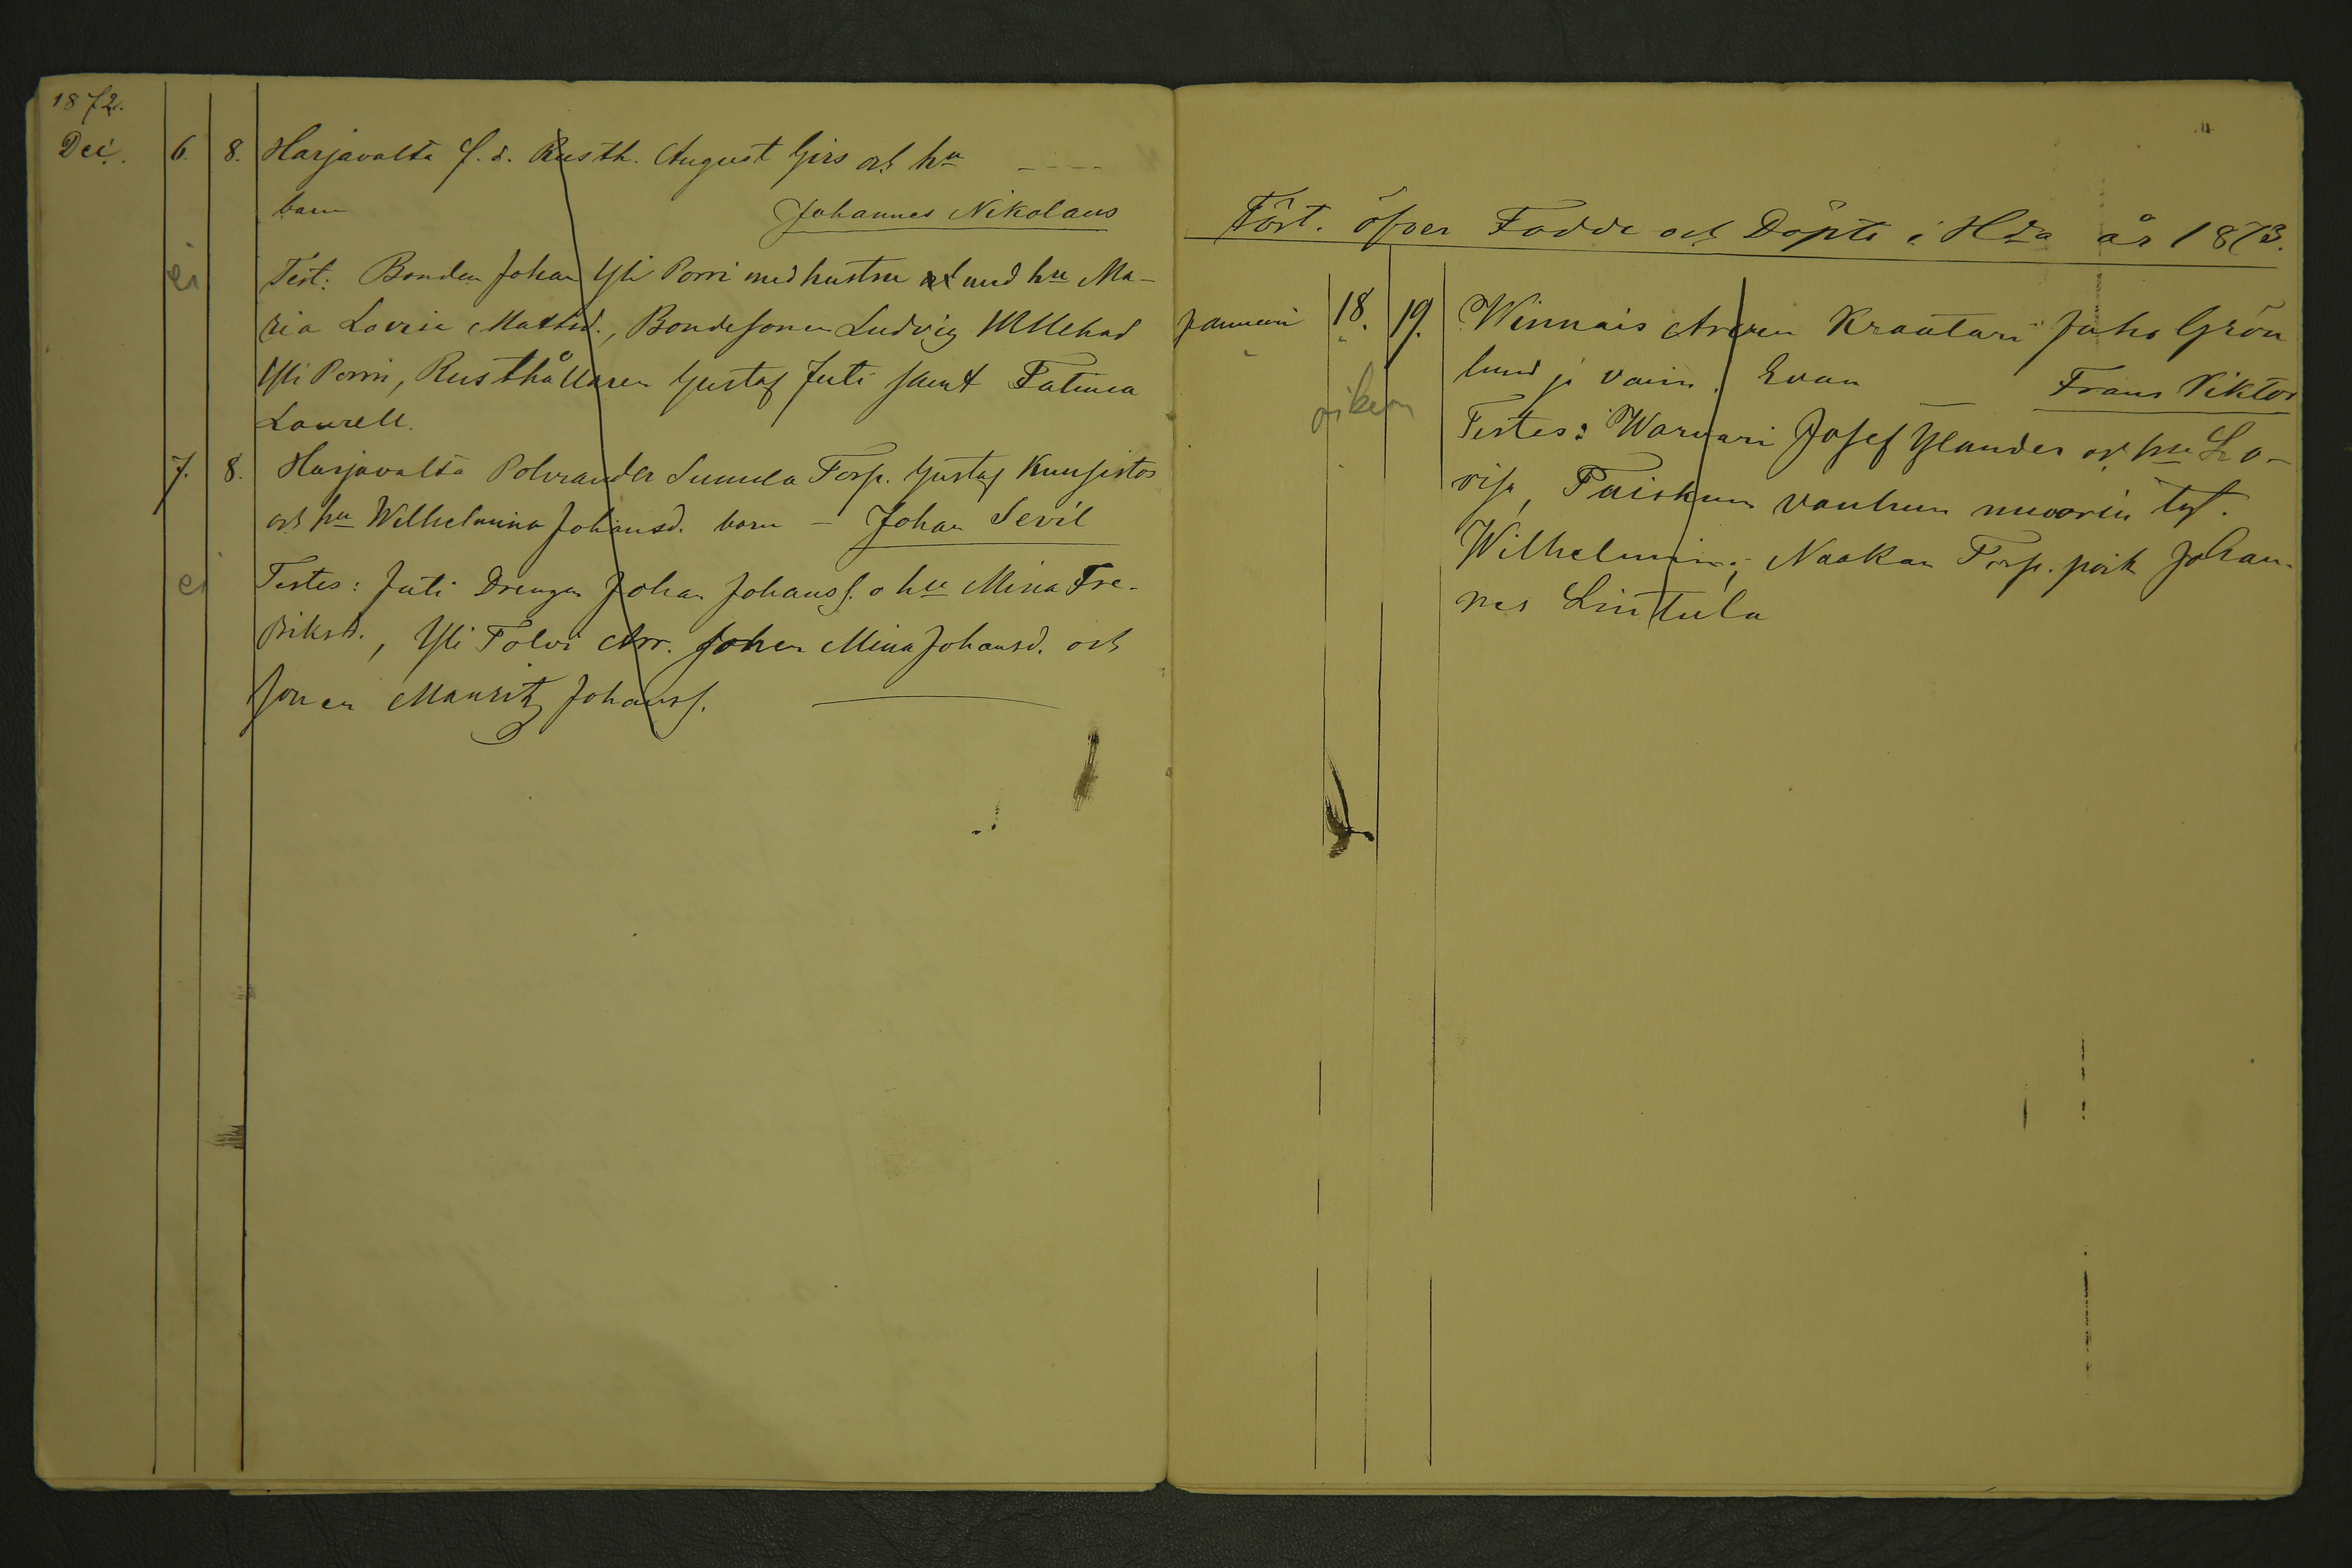 1872.
Dec. 6. 8. Harjavalta f. d. Rusth. August Girs och hu
barn Johannes Nikolaus
ei
Test: Bonden Johan Yli Porri med hustru och med hu Ma-
ria Lovisa Mattsd., Bondesonen Ludvig
Yli Porri, Rusthållaren Gustaf Juti samt
Laurell.
7. 8. Harjavalta Sumela Torp. Gustaf Kunsistos
och hu Wilhelmina Johansd. barn – Johan Sevil
ei
Testes: Juti Drengen Johan Johanss. o hu Mina Fre-
driksd., Yli Tolvi Arr. Johan Mina Johansd. och
sonen Mauritz Johanss.
Fört. öfver Födde och Döpte i Hvta år 1873.
Januari 18. 19. Winnais Krantari Juho Grön
lund ja vaim. Evan — Frans Viktor
oikein
Testes: Warvari Josef Ylander och hu Lo-
visa, Paiskun vanhun nuorin tyt.
Wilhelmina, Naakan Torp. poik Johan-
nes Lintula